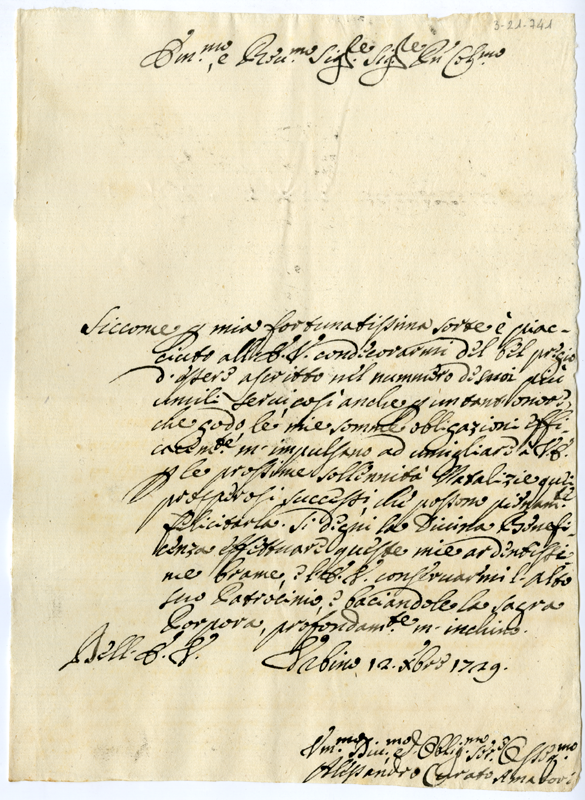 3-21-741
Em.mo, e Rev.mo Sig.re Sig.re Pn' Colmo
Siccome p mia fortunatissima sorte è piac-
ciuto all'E. V. condecorarmi del bel preggio
d'essere ascritto nel numero de suoi più
umili servi, così anche p un tant' onore,
che godo le mie somme obligazioni effi-
cacem.te m'impulsano ad umigliare à V.E.
p le prossime sollennità Natalizie quei
prosperosi successi, che possono pienam.te
felicitarla. Si degni la Divina Benefi-
cenza effettuare queste mie ardentissi-
me brame, e l'E. V. conservarmi l'alto
suo Patrocinio, e baciandole la sacra
Porpora, profondam.te m'inchino.
Dell'E. V.
Sabino 12. Xbre 1729.
Um.mo Div.mo ed Oblig.mo Ser.e
Alessandro Curato Amatori